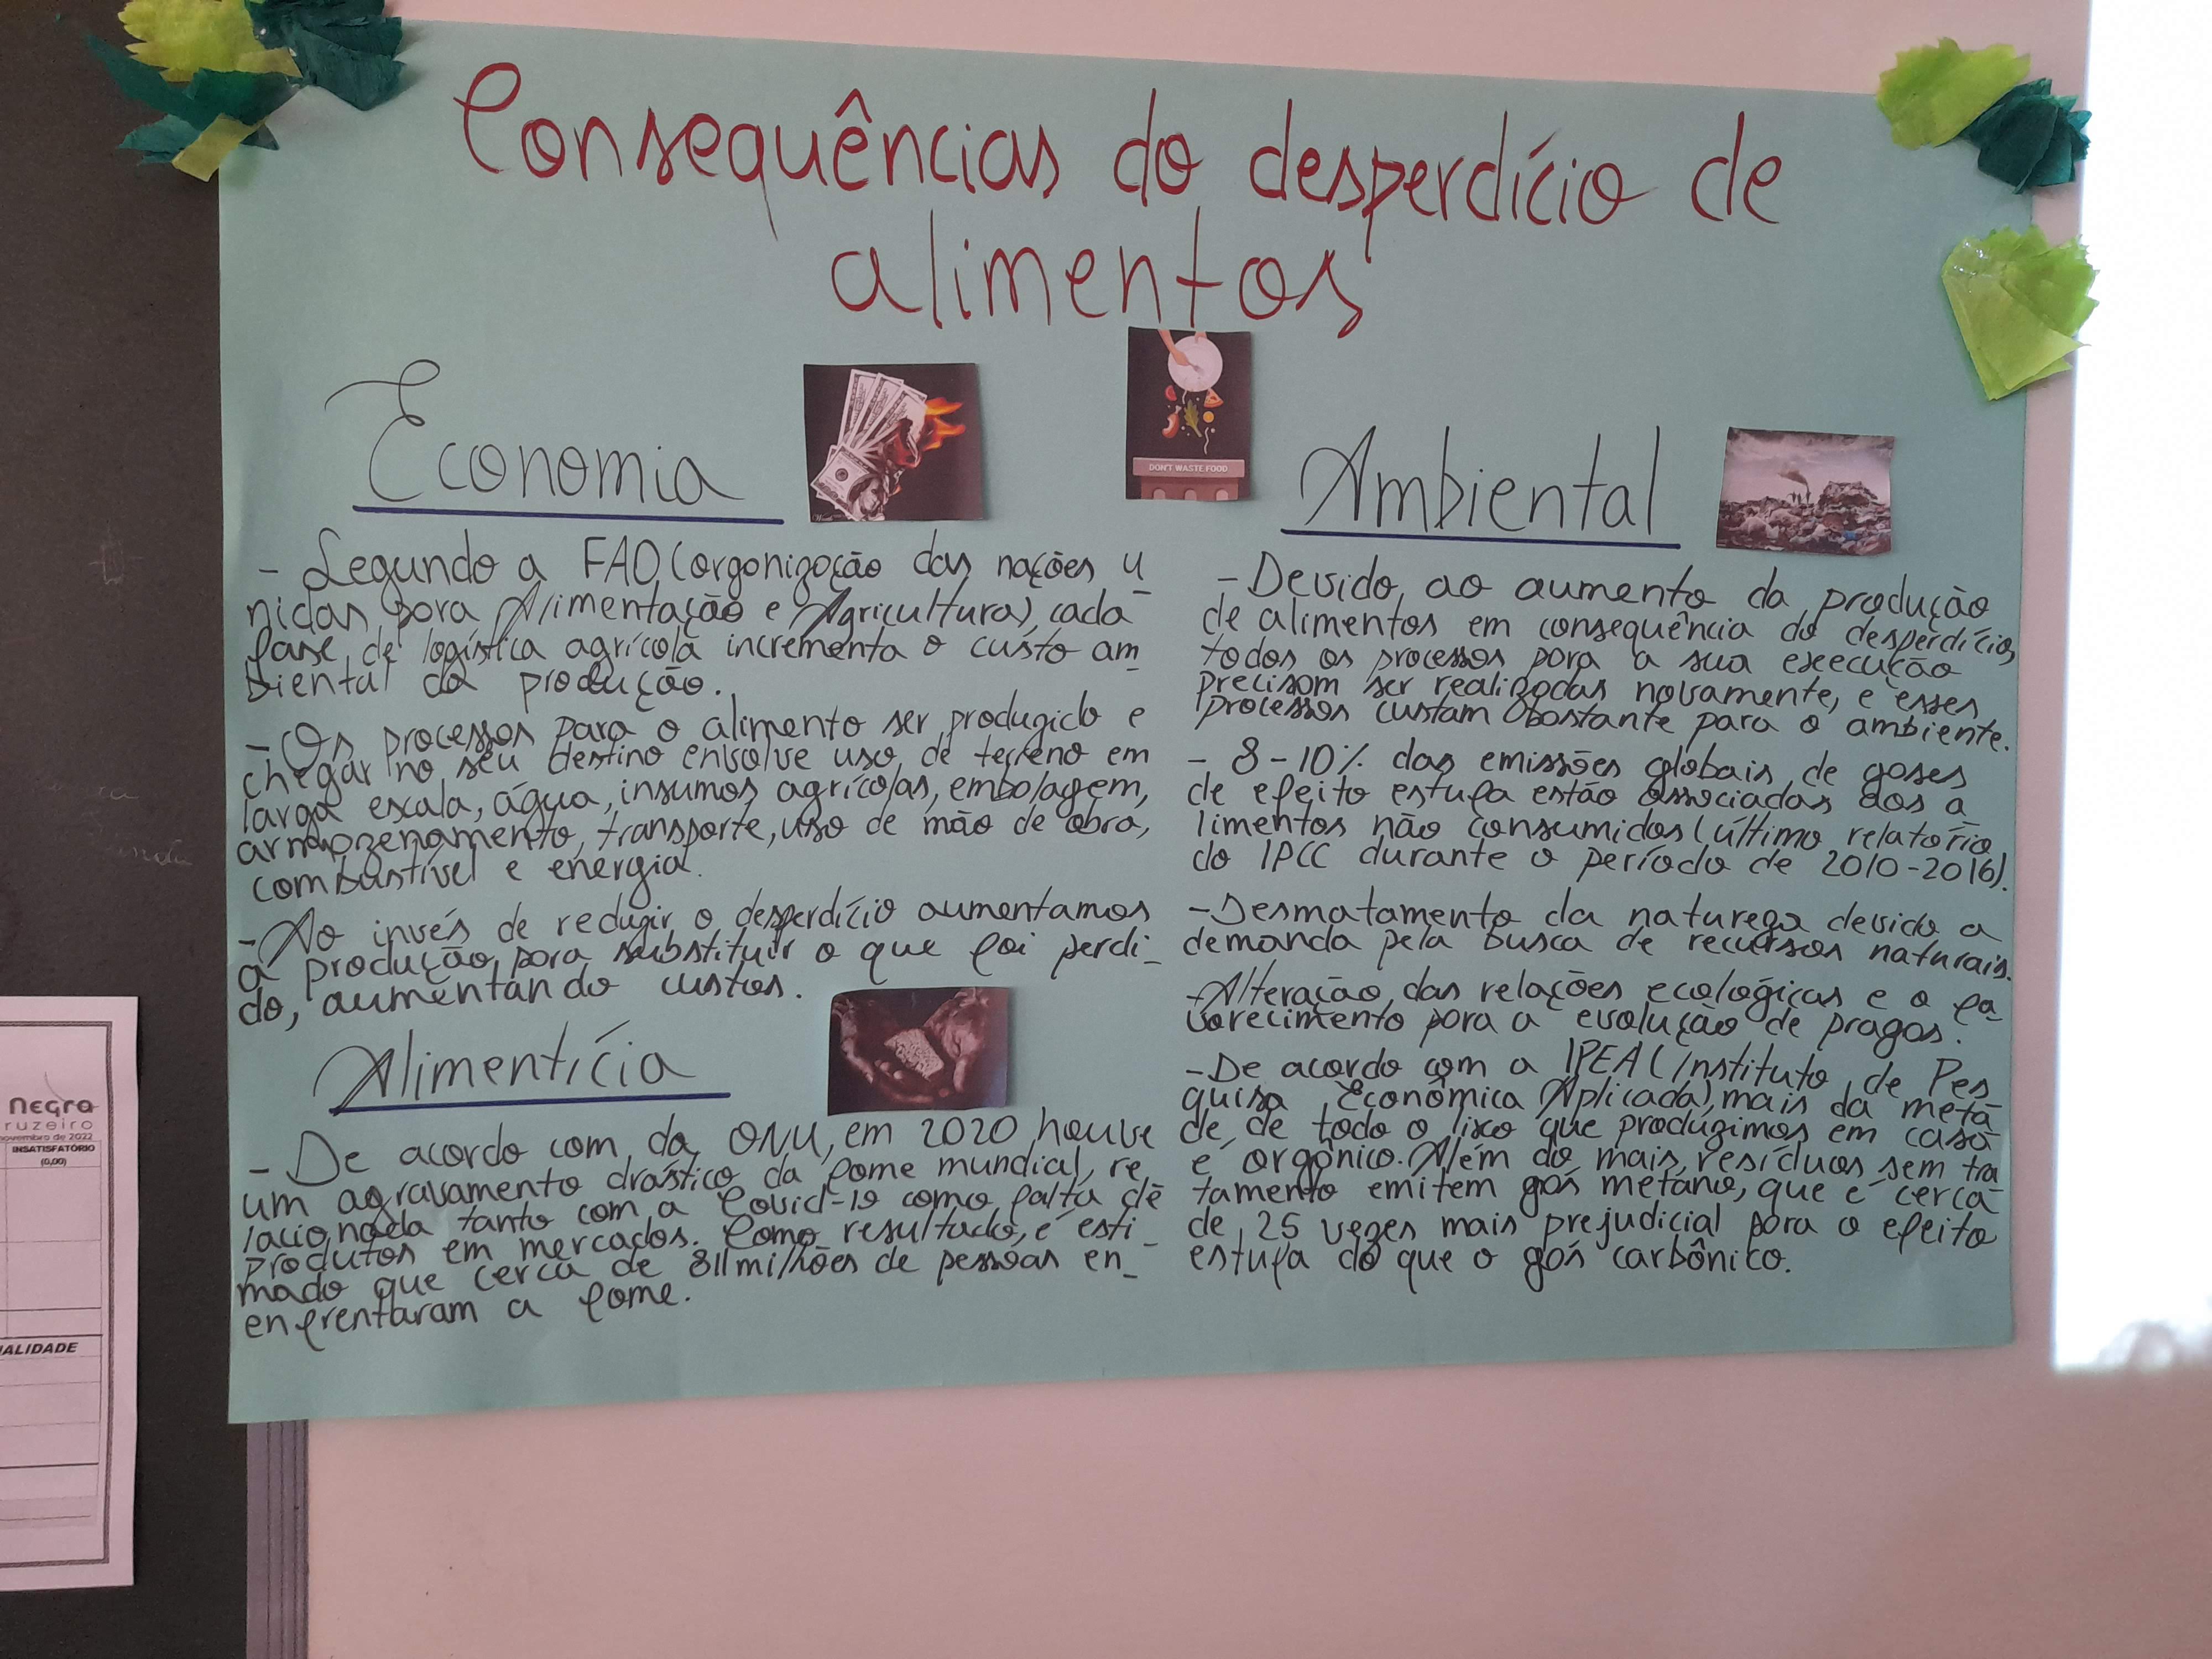 Consequências do desperdício de
alimentos
Economia
- Segundo a FAO (orgonizoção das nações u
nidas pora Alimentação e Agricultura), cada
fase de logística agrícola incrementa o custo am
biental da produção.
- Os processos para o alimento ser produzido e
chegar no seu destino envolve uso de terreno em
larga escala, água, insumos agrícolas, embalagem,
armazenamento, transporte, uso de mão de obra,
combustível e energia.
- Ao invés de reduzir o desperdício aumentamos
a produção pora substituir o que foi perdi_
do, aumentando custos.
Alimentícia
- De acordo com da ONU, em 2020 houve
um agravamento drástico da fome mundial, re_
lacionada tanto com a Covid-19 como falta de
produtos em mercados. Como resultado, é esti_
mado que cerca de 811 milhões de pessoas en_
enfrentaram a fome.
DON'T WASTE FOOD
Ambiental
- Devido ao aumento da produção
de alimentos em consequência do desperdício,
todos os processos pora a sua execução
precisom ser realizodas novamente, e esses
processos custam bastante para o ambiente.
- 8-10% das emissões globais de goses
de efeito estufa estão associadas aos a_
limentos não consumidos (último relatório
do IPCC durante o período de 2010-2016).
- Desmatamento da natureza devido a
demanda pela busca de recursos naturais.
- Alteração das relações ecológicas e o fa_
vorecimento pora a evolução de pragas.
- De acordo com a IPEA (Instituto de Pes_
quisa Econômica Aplicada), mais da meta_
de de todo o lixo que produzimos em casa
é orgônico. Além do mais, resíduos sem tra_
tamento emitem gás metano, que é cerca
de 25 vezes mais prejudicial pora o efeito
estufa do que o gás carbônico.
Negra
ruzeiro
novembro de 2022
INSATISFATÓRIO
(0,00)
ALIDADE